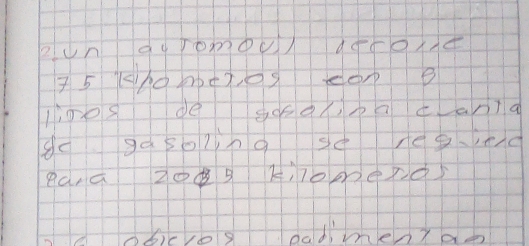 2. un automovil recorre
75 kilometros con 8
litros de gasolina cuanta
de gasolina se requiere
para 2005 kilometros
oficios